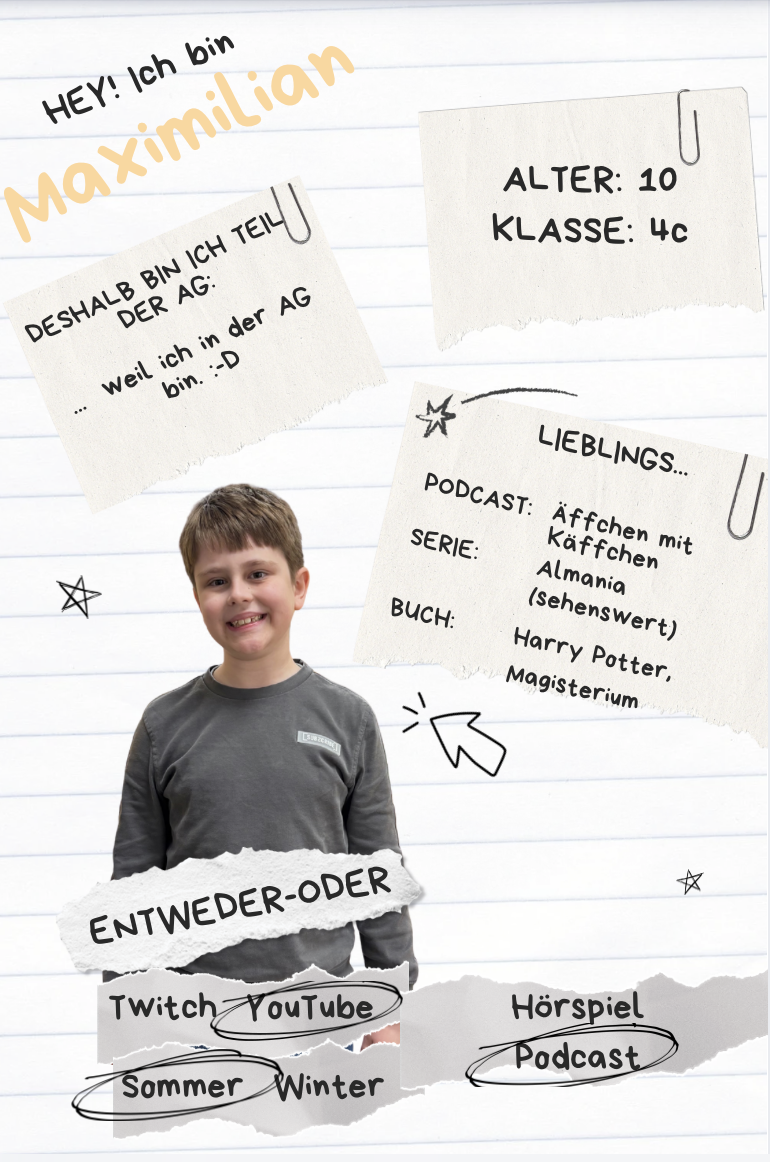 HEY! Ich bin
Maximilian
ALTER: 10
KLASSE: 4c
DESHALB BIN ICH TEIL
DER AG:
... weil ich in der AG
bin. :-D
LIEBLINGS...
PODCAST: Äffchen mit
Käffchen
SERIE: Almania
(sehenswert)
BUCH: Harry Potter,
Magisterium
ENTWEDER-ODER
Twitch YouTube
Hörspiel
Podcast
Sommer Winter